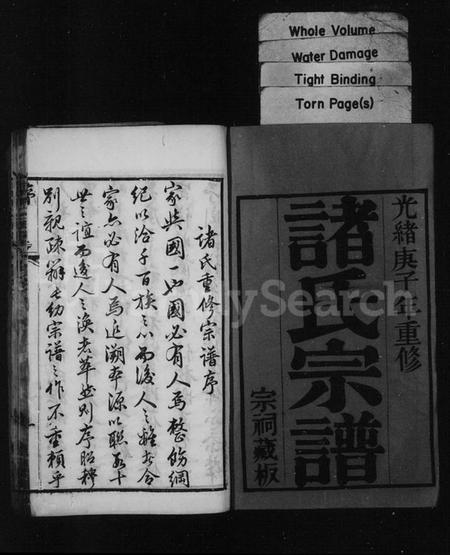 Whole Volume
Water Damage
Tight Binding
Torn Page(s)
光緒庚子年重修
諸氏宗譜
宗祠藏板
諸氏重修宗譜序
家與國一也國必有人焉整飭綱
紀以治千百族之以而後人之雜者合
家亦必有人焉追溯本源以聯五十
世之誼而後人之渙者萃然則序昭穆
別親疎辨長幼宗譜之作不重賴乎
序
MySearch